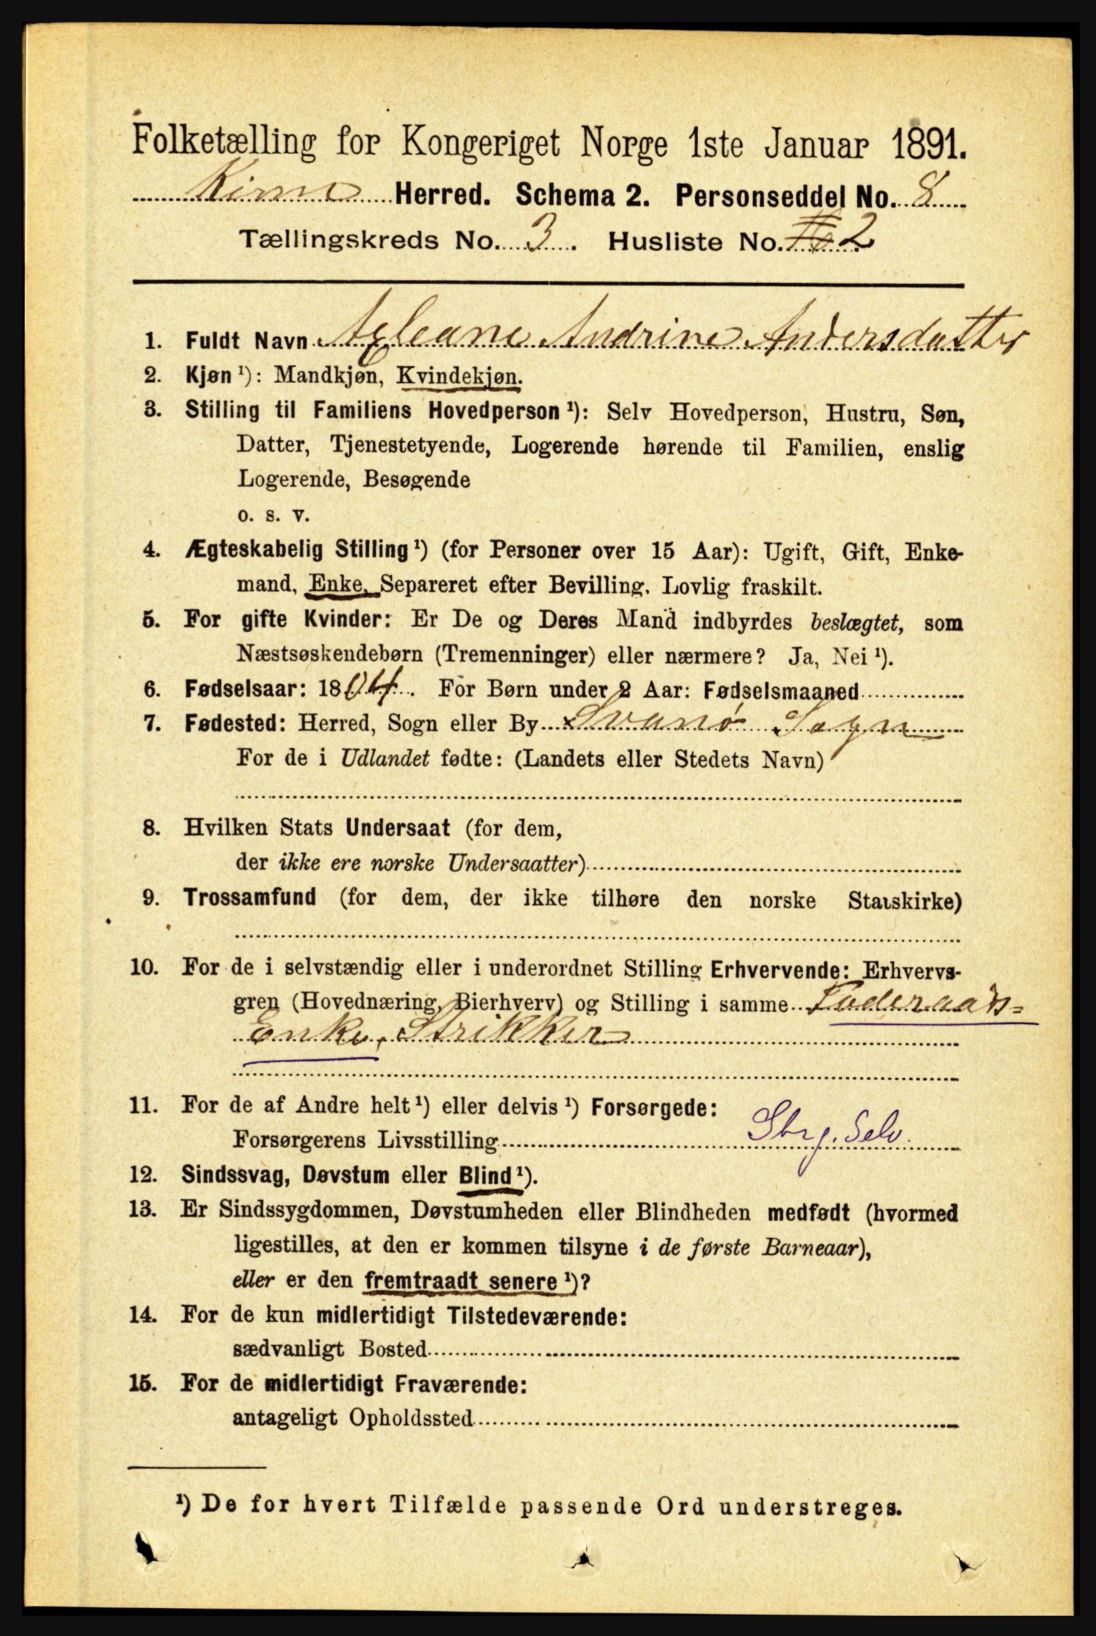 Folketælling for Kongeriget Norge 1ste Januar 1891.
Kinn Herred. Schema 2. Personseddel No. 8
Tællingskreds No. 3. Husliste No. 2
1. Fuldt Navn Andrine Andersdatter
2. Kjøn ¹): Mandkjøn, Kvindekjøn.
3. Stilling til Familiens Hovedperson ¹): Selv Hovedperson, Hustru, Søn,
Datter, Tjenestetyende, Logerende hørende til Familien, enslig
Logerende, Besøgende
o. s. v.
4. Ægteskabelig Stilling ¹) (for Personer over 15 Aar): Ugift, Gift, Enke-
mand, Enke, Separeret efter Bevilling. Lovlig fraskilt.
5. For gifte Kvinder: Er De og Deres Mand indbyrdes beslægtet, som
Næstsøskendebørn (Tremenninger) eller nærmere? Ja, Nei ¹).
6. Fødselsaar: 1804. For Børn under 2 Aar: Fødselsmaaned
7. Fødested: Herred, Sogn eller By Svanø Sogn
For de i Udlandet fødte: (Landets eller Stedets Navn)
8. Hvilken Stats Undersaat (for dem,
der ikke ere norske Undersaatter)
9. Trossamfund (for dem, der ikke tilhøre den norske Statskirke)
10. For de i selvstændig eller i underordnet Stilling Erhvervende: Erhvervs-
gren (Hovednæring, Bierhverv) og Stilling i samme Føderaads=
Enke, Strikker
11. For de af Andre helt ¹) eller delvis ¹) Forsørgede:
Forsørgerens Livsstilling Sbrg. Selv.
12. Sindssvag, Døvstum eller Blind ¹).
13. Er Sindssygdommen, Døvstumheden eller Blindheden medfødt (hvormed
ligestilles, at den er kommen tilsyne i de første Barneaar),
eller er den fremtraadt senere ¹)?
14. For de kun midlertidigt Tilstedeværende:
sædvanligt Bosted
15. For de midlertidigt Fraværende:
antageligt Opholdssted
¹) De for hvert Tilfælde passende Ord understreges.